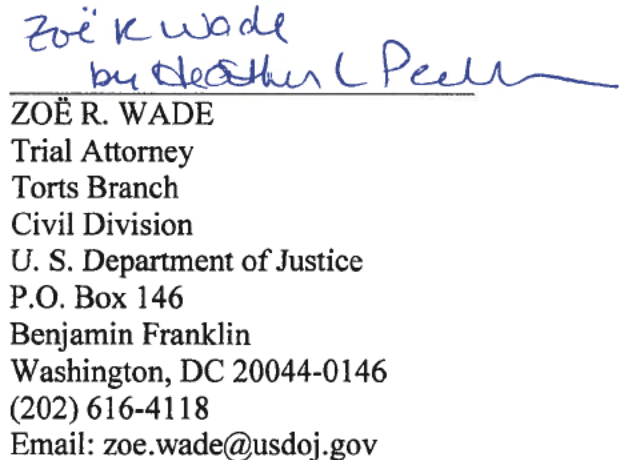 Zoë R Wade
by Heather L
ZOË R. WADE
Trial Attorney
Torts Branch
Civil Division
U. S. Department of Justice
P.O. Box 146
Benjamin Franklin
Washington, DC 20044-0146
(202) 616-4118
Email: zoe.wade@usdoj.gov